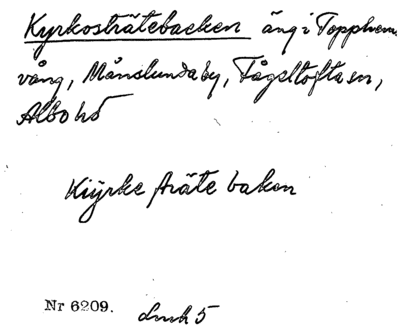 Kyrkosträtebacken äng i Topphem
vång, Månslunda by, Fågeltofta sn,
Albo hd
Kiÿrke sträte baken
Nr 6209. Lmk 5